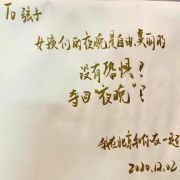 To 弦子
女孩们的夜晚是自由、美丽的
没有恐惧？
寺田“夜晚”！
我在北京和你在一起
2020.12.02